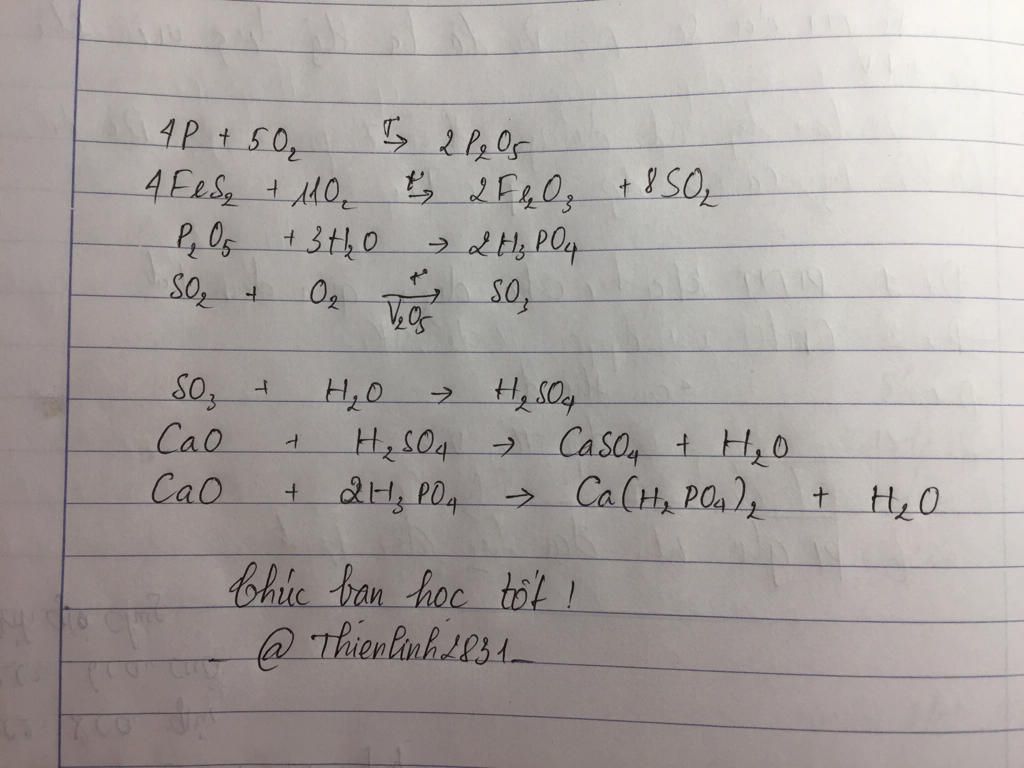 4P + 5O₂ →(t°) 2P₂O₅
4FeS₂ + 11O₂ →(t°) 2Fe₂O₃ + 8SO₂
P₂O₅ + 3H₂O → 2H₃PO₄
SO₂ + O₂ →(t°, V₂O₅) SO₃
SO₃ + H₂O → H₂SO₄
CaO + H₂SO₄ → CaSO₄ + H₂O
CaO + 2H₃PO₄ → Ca(H₂PO₄)₂ + H₂O
Chúc bạn học tốt !
@ Thienlinh2831_